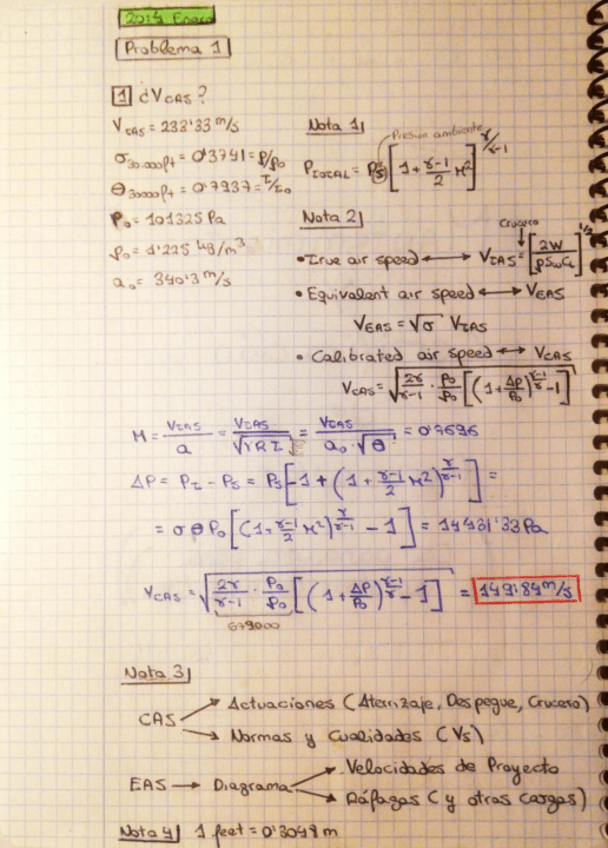 2014 Enero
Problema 1
1 ¿VCAS?
VTAS = 233'33 m/s
σ30.000ft = 0'3741 = ρ/ρ0
θ30000ft = 0'7937 = T/T0
P0 = 101325 Pa
ρ0 = 1'225 kg/m³
a0 = 340'3 m/s
Nota 1
Presion ambiente
PTOTAL = PS [1 + γ-1/2 M²]^γ/γ-1
Nota 2
Crucero
• True air speed ↔ VTAS = [2W/ρSwCL]^1/2
• Equivalent air speed ↔ VEAS
VEAS = √σ VTAS
• Calibrated air speed ↔ VCAS
VCAS = √(2γ/γ-1 · P0/ρ0 [(1 + ΔP/P0)^γ-1/γ - 1])
M = VTAS/a = VTAS/√γRT = VTAS/a0·√θ = 0'7696
ΔP = PT - PS = PS [-1 + (1 + γ-1/2 M²)^γ/γ-1] =
= σ θ P0 [(1 + γ-1/2 M²)^γ/γ-1 - 1] = 14431'33 Pa
VCAS = √(2γ/γ-1 · P0/ρ0 [(1 + ΔP/P0)^γ-1/γ - 1]) = 149'84 m/s
579000
Nota 3
CAS → Actuaciones (Aterrizaje, Despegue, Crucero)
→ Normas y Cualidades (VS)
EAS → Diagrama → Velocidades de Proyecto
→ Ráfagas (y otras cargas)
Nota 4 1 feet = 0'3048 m